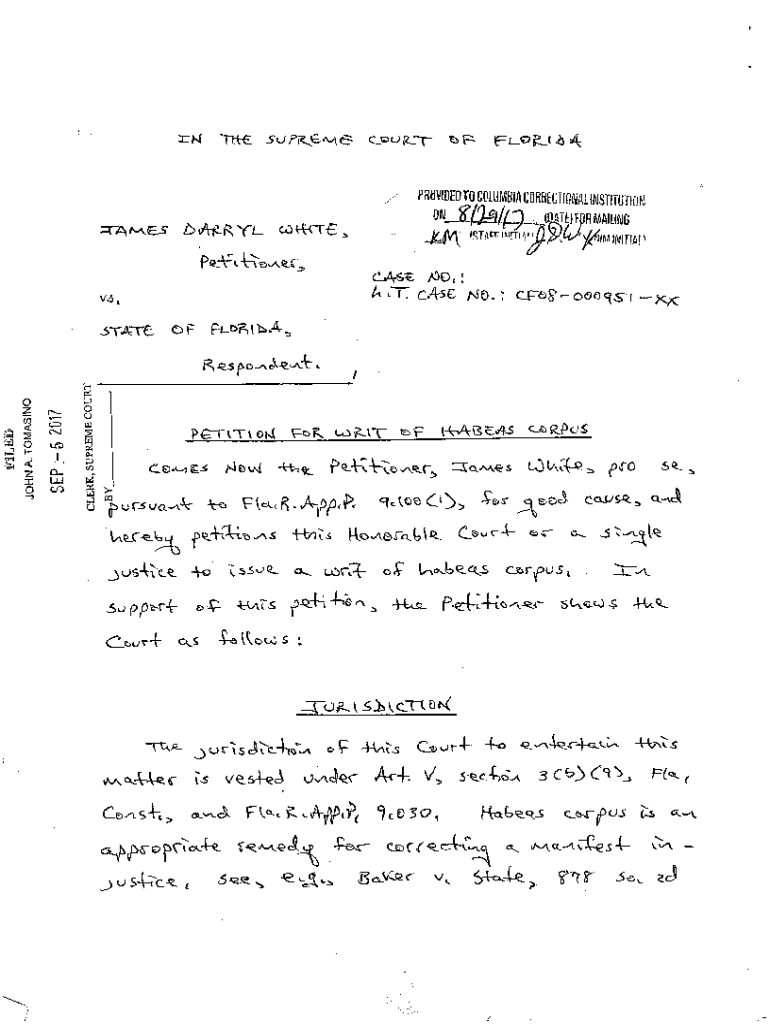 IN THE SUPREME COURT OF FLORIDA
PROVIDED TO COLUMBIA CORRECTIONAL INSTITUTION
ON 8/29/17 (DATE) FOR MAILING
KM (STAFF INITIAL) JDW (INM INITIAL)
JAMES DARRYL WHITE,
Petitioner,
vs.
STATE OF FLORIDA,
Respondent.
CASE NO.:
L.T. CASE NO.: CF08-000951-XX
FILED
JOHN A. TOMASINO
SEP -5 2017
CLERK, SUPREME COURT
BY
PETITION FOR WRIT OF HABEAS CORPUS
COMES NOW the Petitioner, James White, pro se,
pursuant to Fla.R.App.P. 9.100(1), for good cause, and
hereby petitions this Honorable Court or a single
justice to issue a writ of habeas corpus. In
support of this petition, the Petitioner shows the
Court as follows:
JURISDICTION
The jurisdiction of this Court to entertain this
matter is vested under Art. V, section 3(b)(9), Fla.
Const., and Fla.R.App.P. 9.030. Habeas corpus is an
appropriate remedy for correcting a manifest in-
justice, see, e.g., Baker v. State, 878 So. 2d